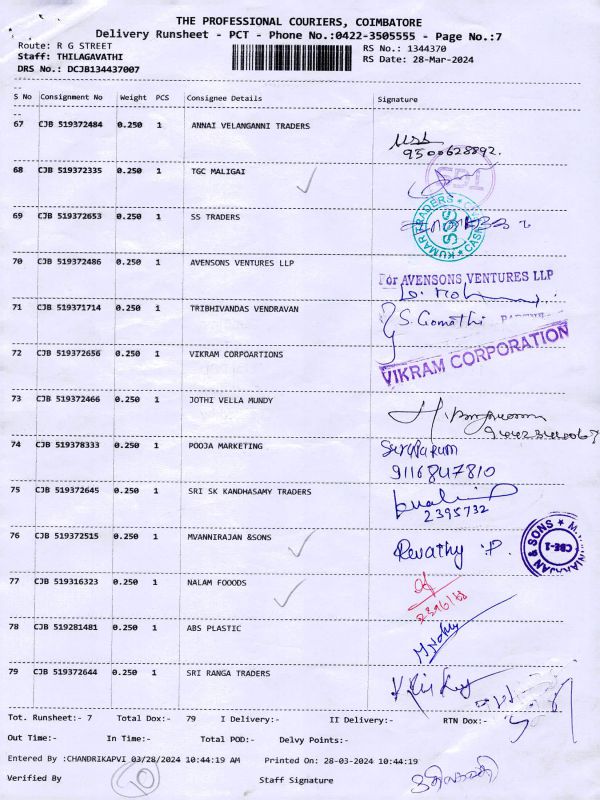 THE PROFESSIONAL COURIERS, COIMBATORE
Delivery Runsheet - PCT - Phone No.:0422-3505555 - Page No.:7
Route: R G STREET RS No.: 1344370
Staff: THILAGAVATHI RS Date: 28-Mar-2024
DRS No.: DCJB134437007
S No Consignment No Weight PCS Consignee Details Signature
67 CJB 519372484 0.250 1 ANNAI VELANGANNI TRADERS
9500628892.
68 CJB 519372335 0.250 1 TGC MALIGAI
69 CJB 519372653 0.250 1 SS TRADERS
KUMAR TRADERS
70 CJB 519372486 0.250 1 AVENSONS VENTURES LLP
For AVENSONS VENTURES LLP
71 CJB 519371714 0.250 1 TRIBHIVANDAS VENDRAVAN
S. Gomathi
72 CJB 519372656 0.250 1 VIKRAM CORPOARTIONS
VIKRAM CORPORATION
73 CJB 519372466 0.250 1 JOTHI VELLA MUNDY
74 CJB 519378333 0.250 1 POOJA MARKETING
9116847810
75 CJB 519372645 0.250 1 SRI SK KANDHASAMY TRADERS
2395732
76 CJB 519372515 0.250 1 MVANNIRAJAN &SONS
Revathy .P.
& SONS
CBE-1
77 CJB 519316323 0.250 1 NALAM FOOODS
78 CJB 519281481 0.250 1 ABS PLASTIC
79 CJB 519372644 0.250 1 SRI RANGA TRADERS
Tot. Runsheet:- 7 Total Dox:- 79 I Delivery:- II Delivery:- RTN Dox:-
Out Time:- In Time:- Total POD:- Delvy Points:-
Entered By :CHANDRIKAPVI 03/28/2024 10:44:19 AM Printed On: 28-03-2024 10:44:19
Verified By Staff Signature